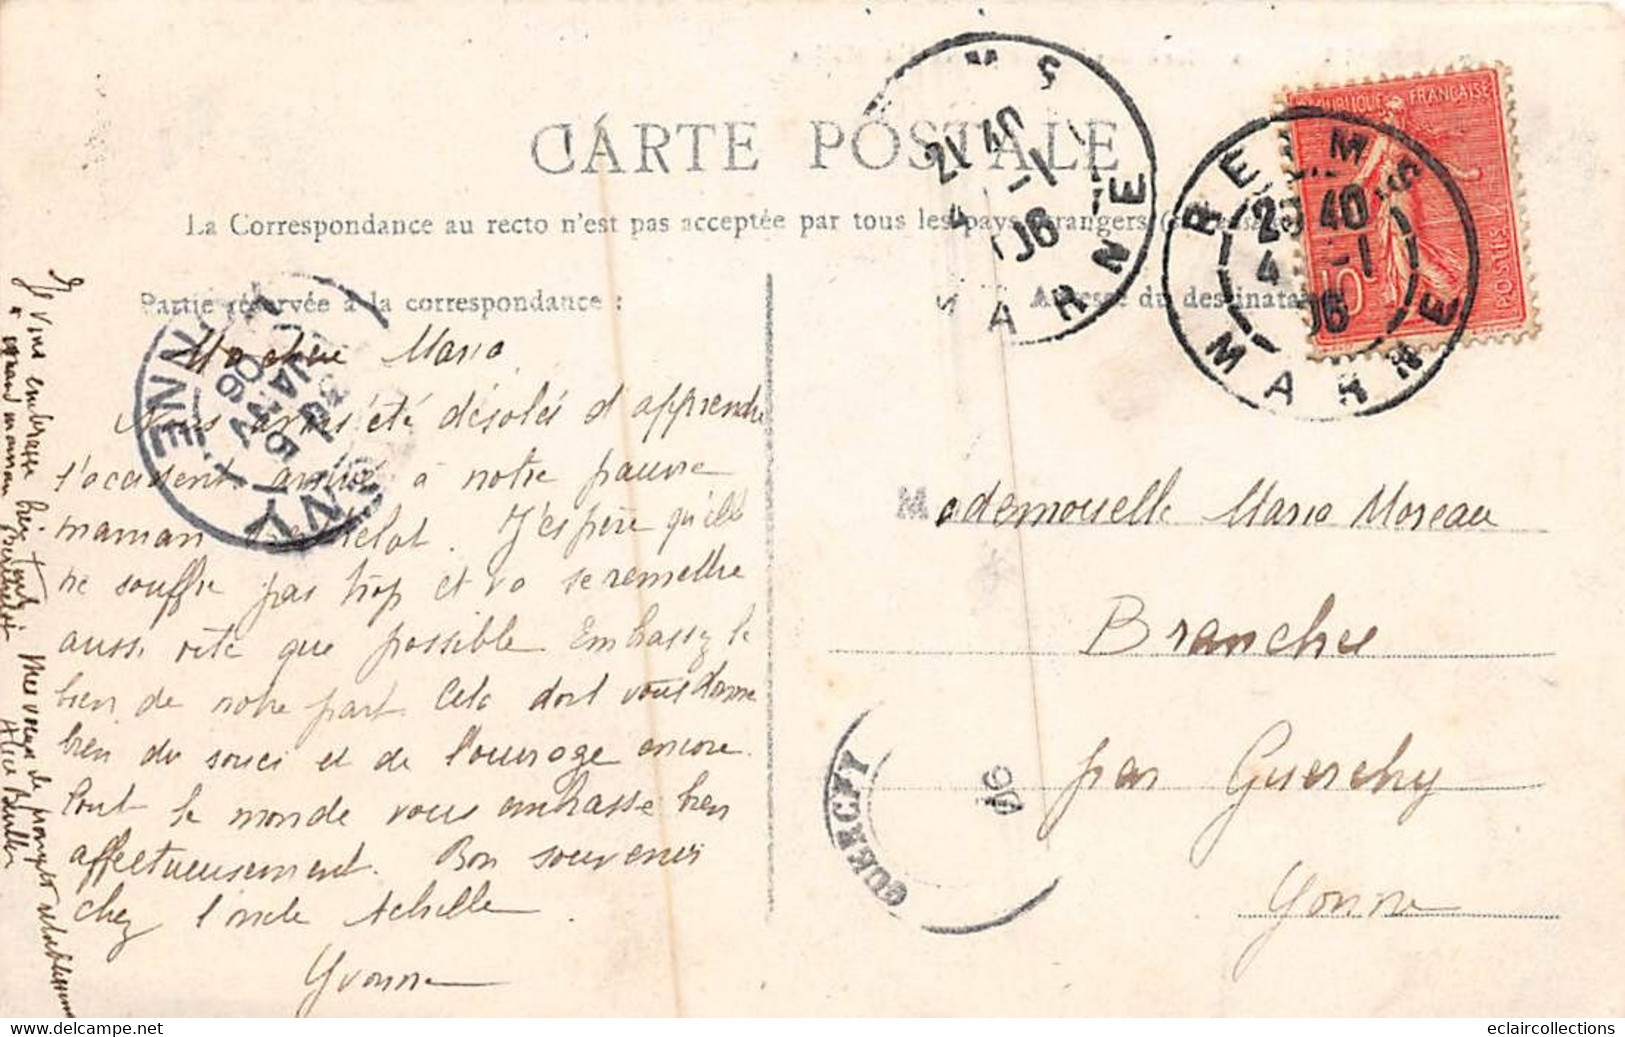 CARTE POSTALE
La Correspondance au recto n'est pas acceptée par tous les pays étrangers
Partie réservée à la correspondance :
Adresse du destinataire
REPUBLIQUE FRANCAISE
POSTES
10
REIMS
21 40
4 -1
06
MARNE
REIMS
23 40
4 -1
06
MARNE
5
JANV
06
YONNE
GUERCHY
06
Ma chère Maria
Nous avons été désolés d'apprendre
l'accident arrivé à notre pauvre
maman Berthelot. J'espère qu'elle
ne souffre pas trop et va se remettre
aussi vite que possible Embrassez le
bien de notre part. Cela doit vous donner
bien du souci et de l'ouvrage encore.
Tout le monde vous embrasse bien
affectueusement. Bon souvenir
chez l'oncle Achille.
Yvonne
Je vous embrasse bien
grand maman Berthelot
Mes voeux de prompt rétablissement
Alice
Mademoiselle Maria Moreau
Branches
par Guerchy
Yonne
eclaircollections